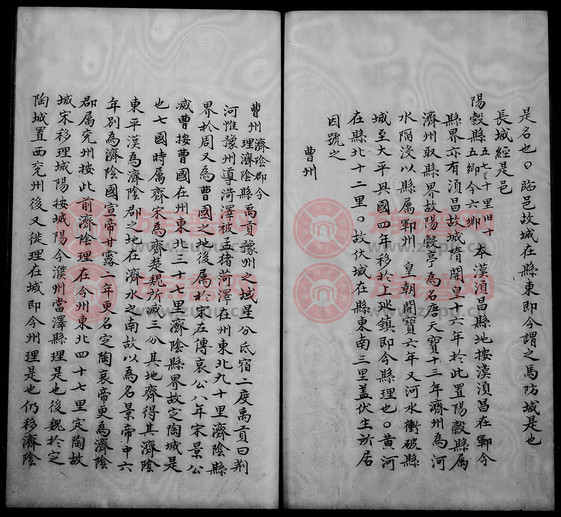 是名也○防邑故城在縣東即今謂之馬防城是也
長城經是邑
陽穀縣 五七十里旧十五鄉今六鄉 本漢湏昌縣地按漢湏昌在鄆今
縣界亦有湏昌故城隋開皇十六年於此置陽穀縣屬
濟州取縣界故陽穀亭為名唐天寶十三年濟州為河
水陥沒以縣屬鄆州 皇朝開寶六年又河水衝破縣
城至太平興國四年移於上巡鎮即今縣理也○黄河
在縣北十二里○故伏城在縣東南三里盖伏生所居
因號之
曹州
曹州 理濟陰郡今理濟陰縣 禹貢豫州之域星分氐宿二度禹貢曰荆
河惟豫州導菏澤被孟猪菏澤在州東北九十里濟陰縣
界於周又為曹國之地後屬於宋左傳哀公八年宋景公
滅曹按曹國在州東北三十七里濟陰縣界故定陶城是
也七國時屬齊宋為齊楚魏所滅三分其地齊得其濟陰
東平漢為濟陰郡之地在濟水之南故以為名景帝中六
年別為濟陰國宣帝甘露二年更名定陶哀帝更為濟陰
郡屬兖州按此前濟陰理在今州東北四十七里定陶故
城宋移理城陽按城陽今濮州當澤縣理是也後魏於定
陶城置西兖州後又徙理在城即今州理是也仍移濟陰